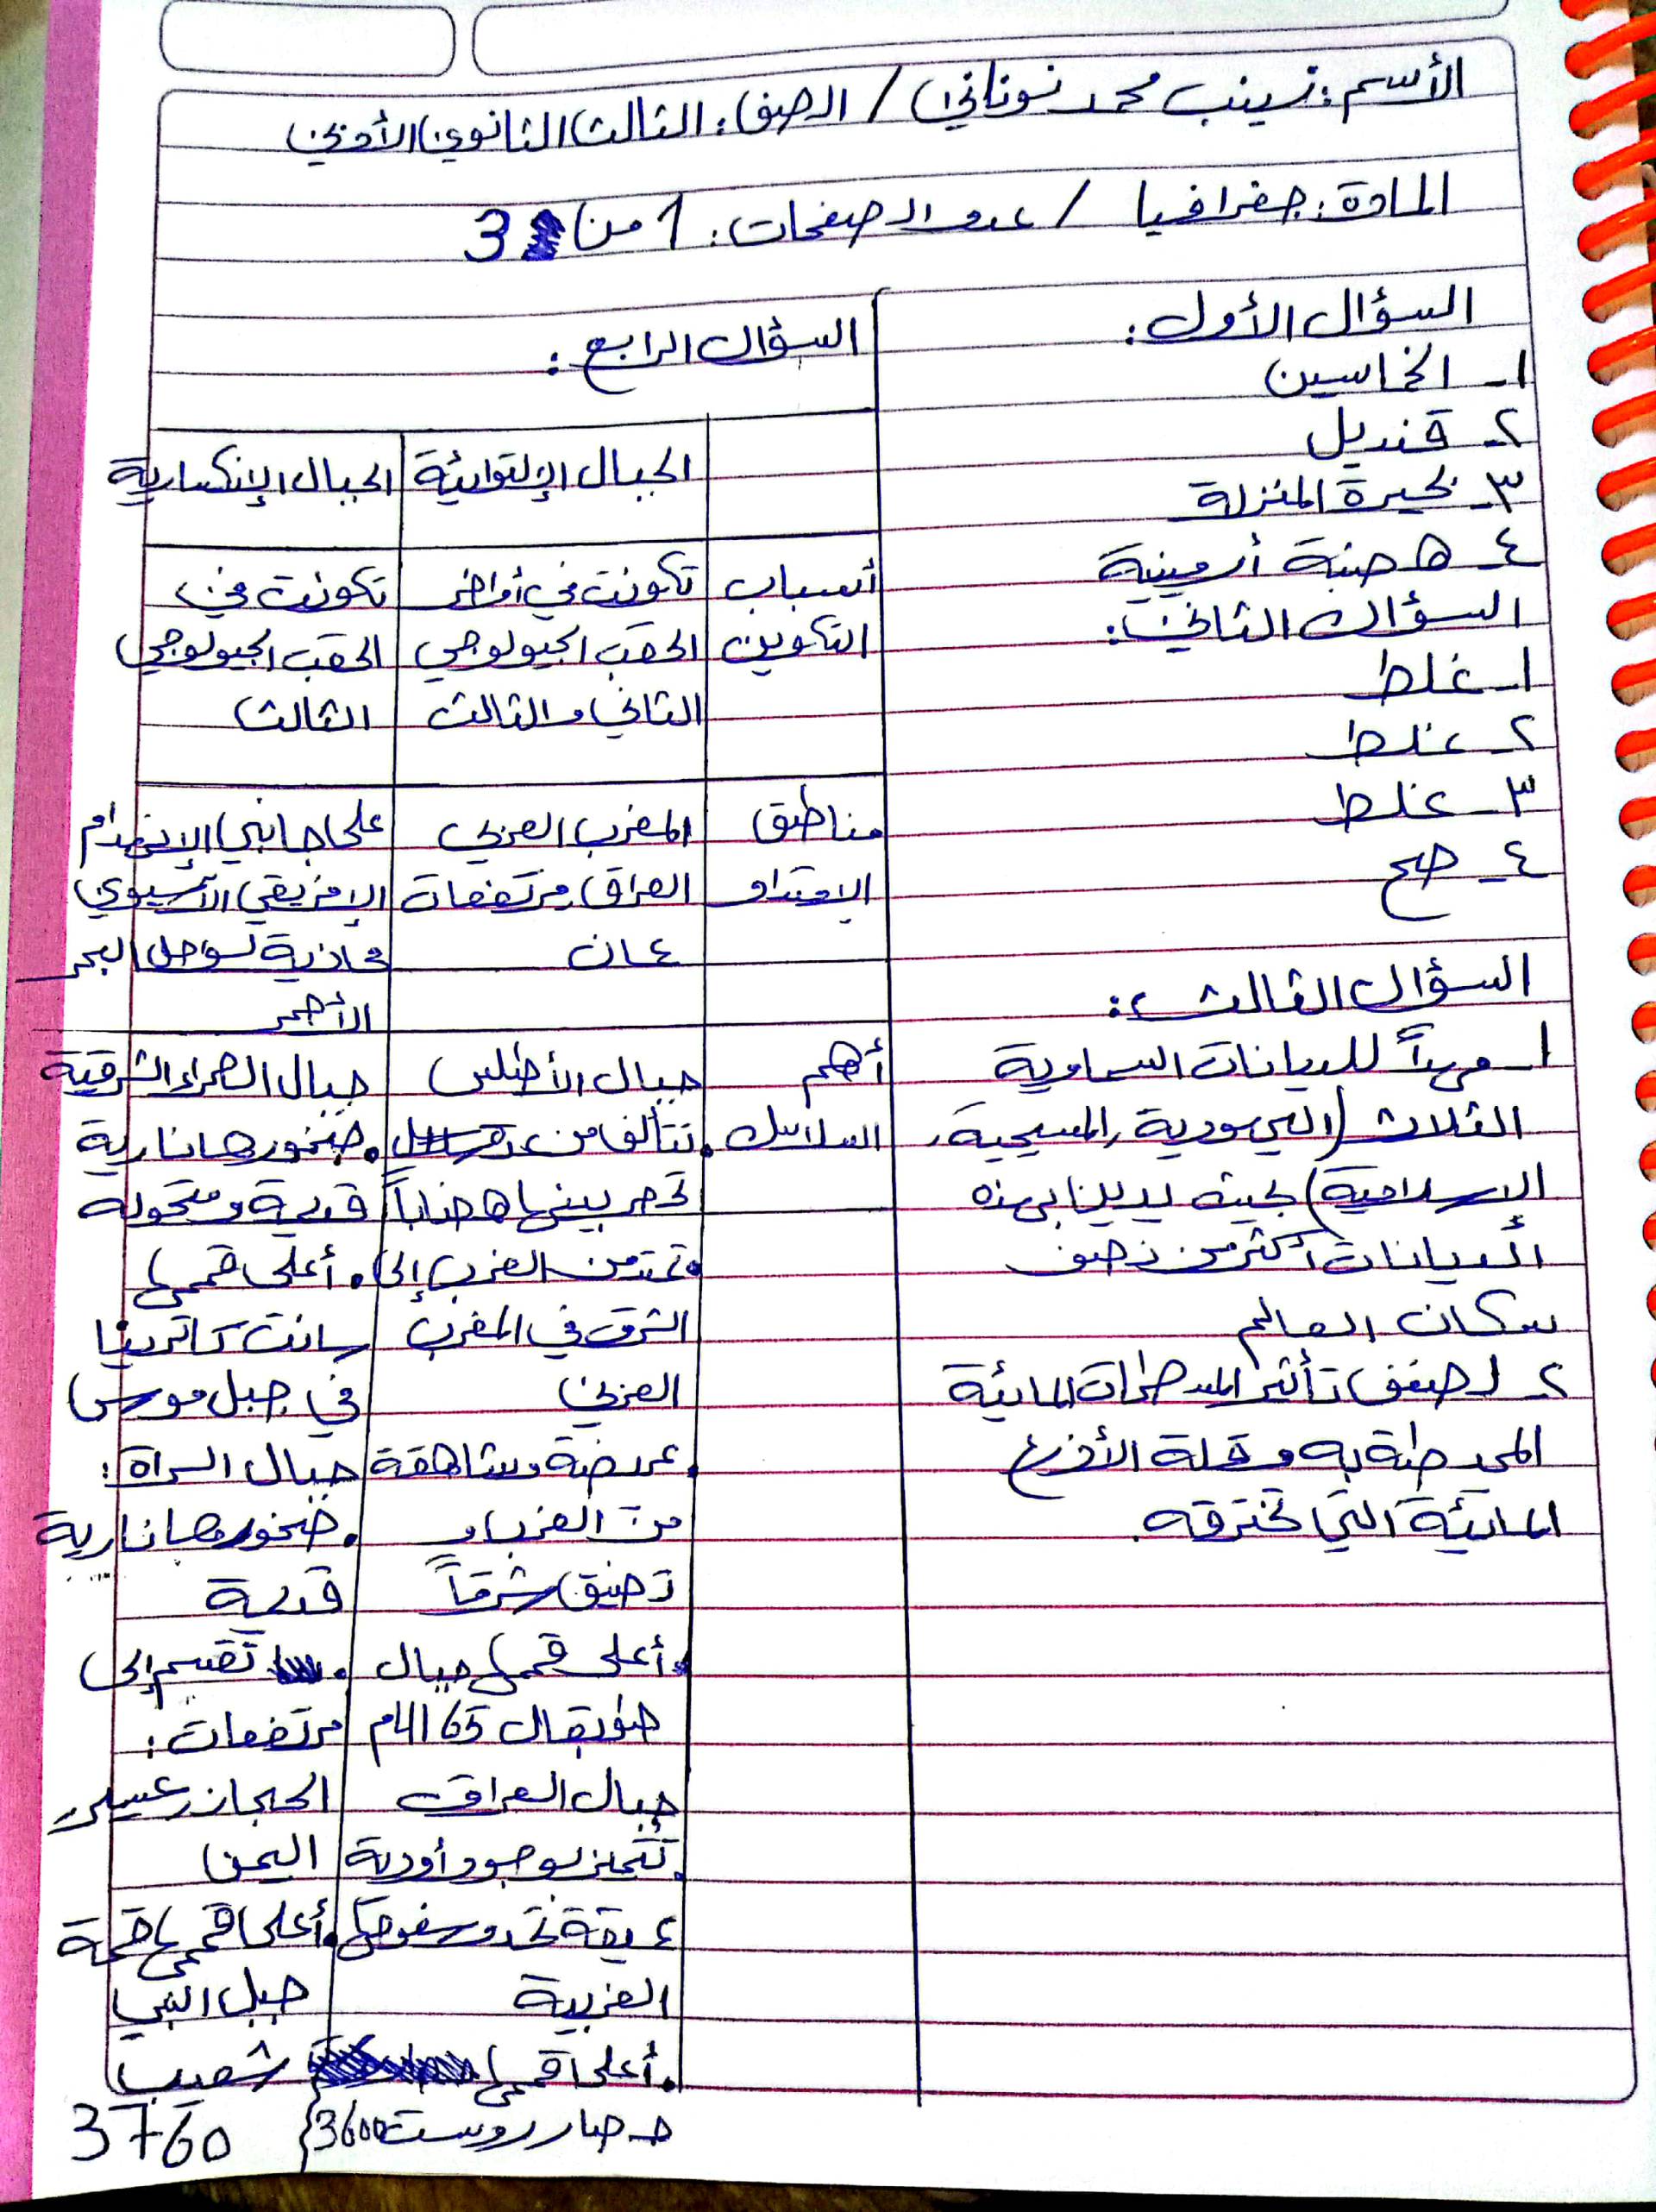 الأسم: زينب محمد نوناني / الصف: الثالث الثانوي الأدبي
المادة: جغرافيا / عدد الصفحات: 1 من 3
السؤال الأول:
١- الخماسين
٢- قنديل
٣- بحيرة المنزلة
٤- هضبة أرمينية
السؤال الثاني:
١- غلط
٢- غلط
٣- غلط
٤- صح
السؤال الثالث:
١- مهداً للديانات السماوية
الثلاث (اليهودية، المسيحية،
الإسلامية) بحيث يدين بهذه
الديانات أكثر من نصف
سكان العالم
٢- لضعف تأثير المسطحات المائية
المحيطة به وقلة الأذرع
المائية التي تخترقه.
السؤال الرابع:
الجبال الإلتوائية
الجبال الإنكسارية
أسباب
التكوين
تكونت في أواخر
الحقب الجيولوجي
الثاني والثالث
تكونت في
الحقب الجيولوجي
الثالث
مناطق
الإمتداد
المغرب العربي
العراق مرتفعات
عمان
على جانبي الإنهدام
الإفريقي الآسيوي
محاذية لسواحل البحر
الأحمر
أهم
السلاسل
جبال الأطلس
• تتألف من
تحصر بينها هضاباً
• تمتد من الغرب إلى
الشرق في المغرب
العربي
• عريضة وشاهقة
من الغرب و
تضيق شرقاً
• أعلى قممها جبال
طوبقال 4165م
جبال العراق
• تتميز بوجود أودية
عميقة تخدد سفوحها
الغربية
• أعلى قممها
حصار روست 3600
جبال الصحراء الشرقية
• صخورها نارية
قديمة ومتحولة
• أعلى قممها
سانت كاترينا
في جبل موسى
جبال السراة:
• صخورها نارية
قديمة
• تقسم إلى
مرتفعات:
الحجاز، عسير،
اليمن
• أعلى قممها قمة
جبل النبي
شعيب
3760